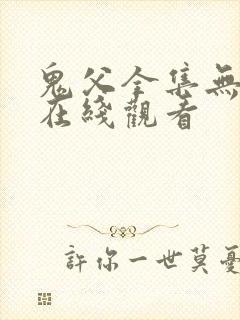 鬼父全集無
在綫觀看
許你一世莫憂